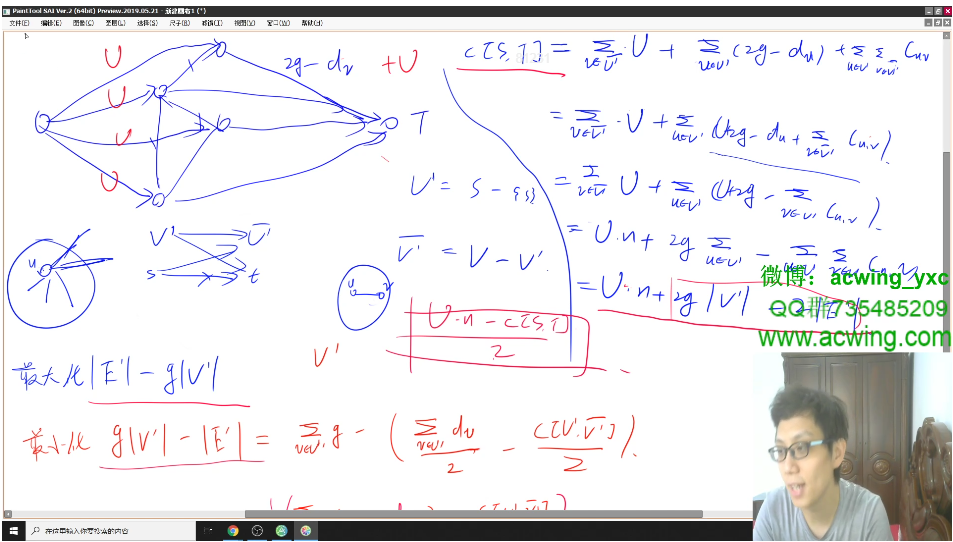 PaintTool SAI Ver.2 (64bit) Preview.2019.05.21 - 新建画布1 (*)
文件(F) 编辑(E) 图像(C) 图层(L) 选择(S) 尺子(R) 滤镜(T) 视图(V) 窗口(W) 帮助(H)
U
U
U
U
2g - dᵥ + U
T
C[S,T] = Σ_{v∈V̅'} U + Σ_{u∈V'} (U+2g - dᵤ) + Σ_{u∈V'} Σ_{v∈V̅'} Cᵤᵥ
= Σ_{v∈V̅'} · U + Σ_{u∈V'} (U+2g - dᵤ + Σ_{v∈V̅'} C_{u,v})
= Σ_{v∈V̅'} U + Σ_{u∈V'} (U+2g - Σ_{v∈V'} C_{u,v})
= U·n + 2g Σ_{u∈V'} - Σ_{u∈V'} Σ_{v∈V'} C_{u,v}
= U·n + 2g|V'| - 2|E'|
V' = S - {s}
V̅' = V - V'
V' V̅'
s t
u
u v
U·n - C[S,T]
2
V'
最大化 |E'| - g|V'|
最小化 g|V'| - |E'| = Σ_{v∈V'} g - ( Σ_{v∈V'} dᵥ / 2 - C[V', V̅'] / 2 ).
微博：acwing_yxc
QQ群735485209
www.acwing.com
在这里输入你要搜索的内容